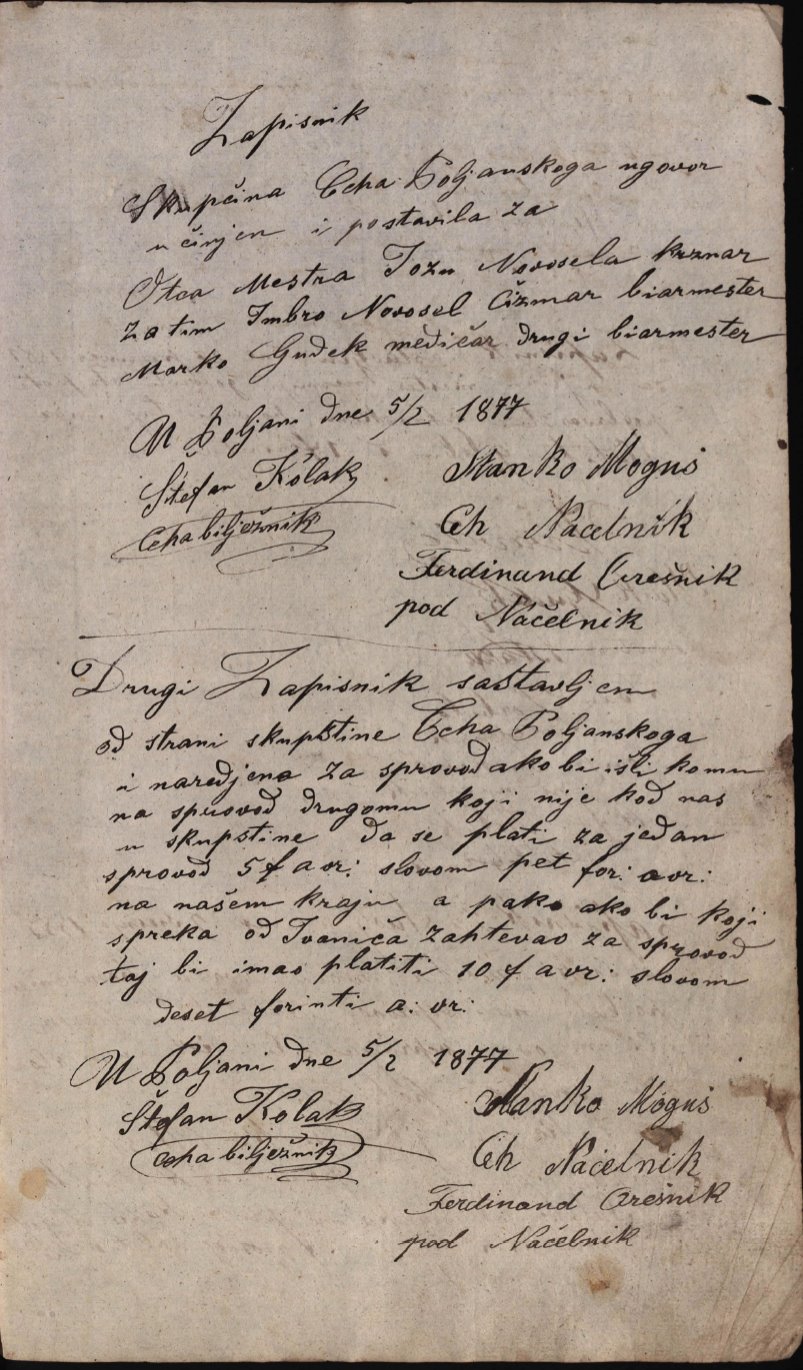 Zapisnik
Skupčina Ceha Poljanskoga ugovor
učinjen i postavila za
Otca Mestra Jozu Novosela krznar
zatim Imbro Novosel Čizmar biarmester
Marko Gudek medičar drugi biarmester
U Poljani dne 5/2 1877
Štefan Kolak
Ceha bilježnik
Stanko Moguš
Ceh Načelnik
Ferdinand Orešnik
pod Načelnik
Drugi Zapisnik sastavljen
od strani skupštine Ceha Poljanskoga
i naredjena za sprovod ako bi išli komu
na sprovod drugomu koji nije kod nas
u skupštine da se plati za jedan
sprovod 5 f a vr: slovom pet for: a vr:
na našem kraju a pako ako bi koji
spreka od Ivaniča zahtevao za sprovod
taj bi imao platiti 10 f a vr: slovom
deset forinti a: vr:
U Poljani dne 5/2 1877
Štefan Kolak
Ceha bilježnik
Stanko Moguš
Ceh Načelnik
Ferdinand Orešnik
pod Načelnik